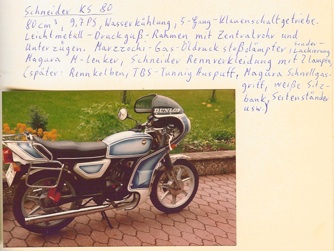 Schneider RS 80
80 cm³, 9,7 PS, Wasserkühlung, 5-Gang-Klauenschaltgetriebe.
Leichtmetall-Druckguß-Rahmen mit Zentralrohr und
Unterzügen. Marzocchi-Gas-Öldruckstoßdämpfer,
Magura M-Lenker, Schneider Rennverkleidung mit 2 Lampen,
Lackierung
(später: Rennkolben, TBS-Tunnig Auspuff, Magura Schnellgas-
griff, weiße Sitz-
bank, Seitenstände
usw.)
DUNLOP